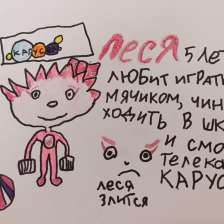 КАРУС
ЛЕСЯ 5 ЛЕ
ЛЮБИТ ИГРАТЬ
МЯЧИКОМ, ЧИН
ХОДИТЬ В ШК
И СМО
ТЕЛЕКА
КАРУС
ЛЕСЯ
ЗЛИТСЯ